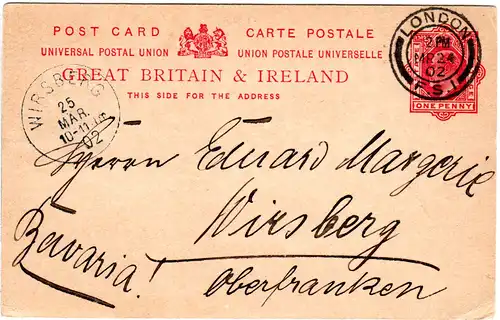 POST CARD CARTE POSTALE
UNIVERSAL POSTAL UNION UNION POSTALE UNIVERSELLE
GREAT BRITAIN & IRELAND
THIS SIDE FOR THE ADDRESS
LONDON
2 PM
MR 24
02
F.S.1
ONE PENNY
WIRSBERG
25
MAR.
10-11
02
Herrn Eduard Margerie
Wirsberg
Bavaria!
Oberfranken